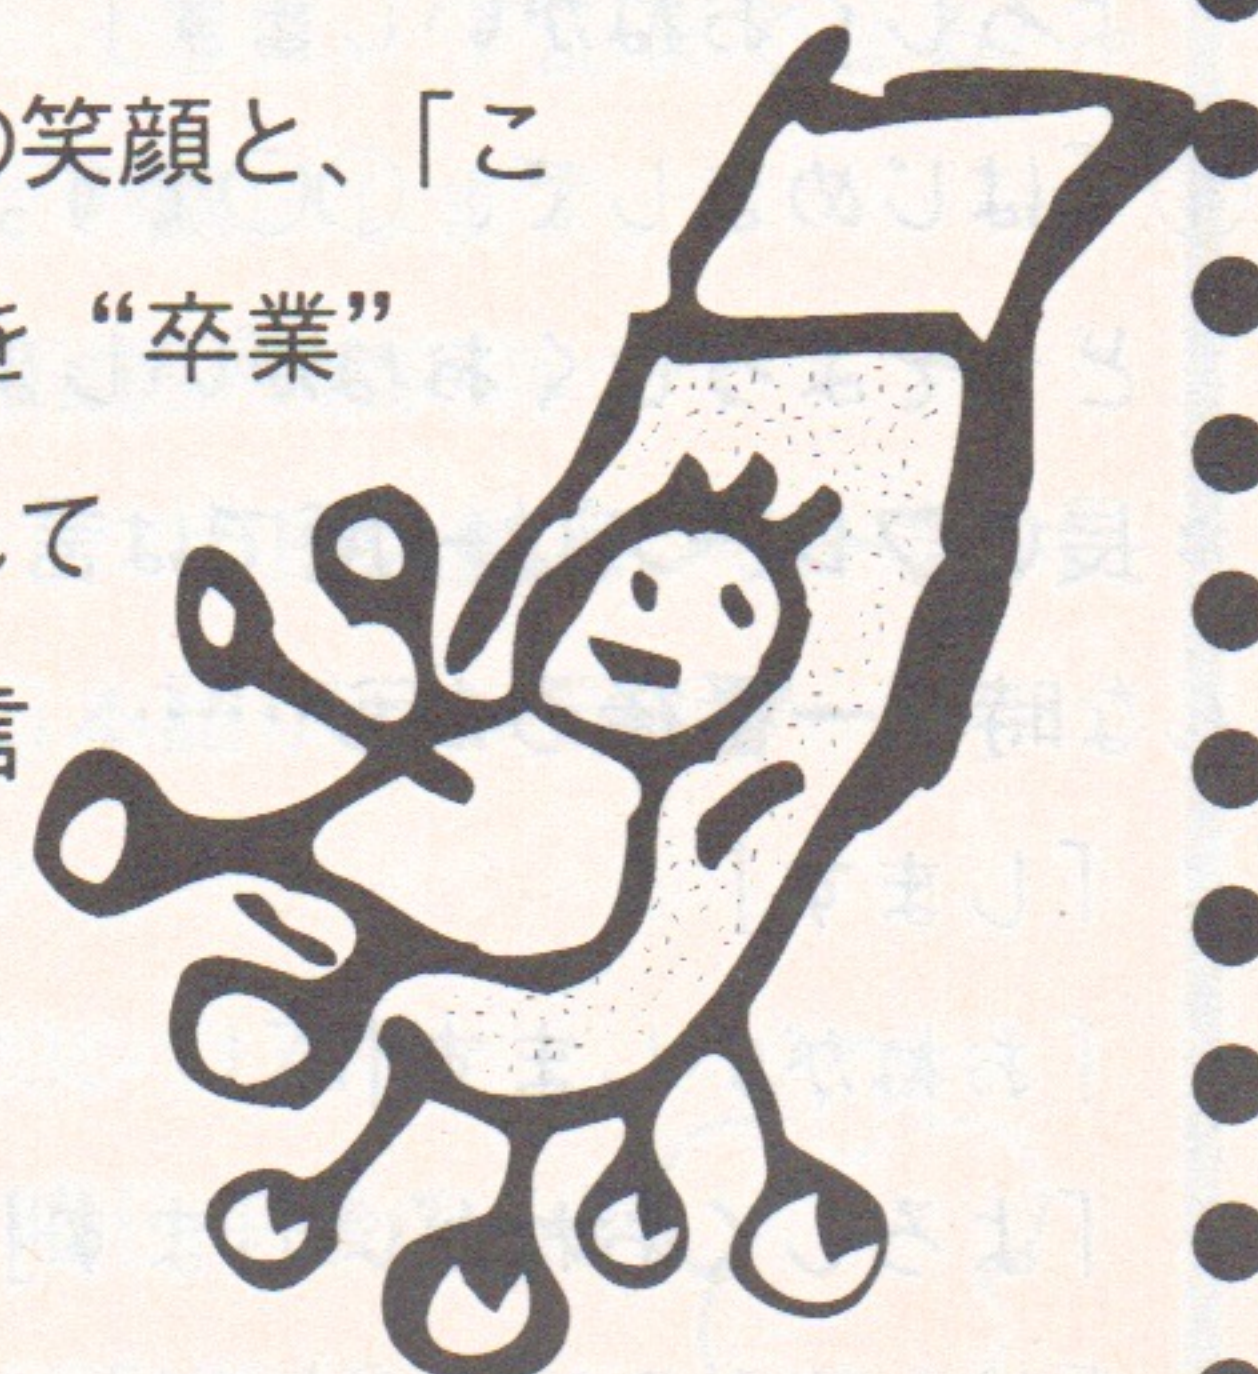 の笑顔と、「こ
を“卒業”
して
信